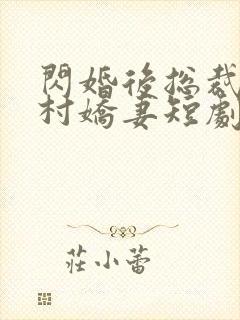 閃婚後總裁
村嬌妻短劇
莊小蕾